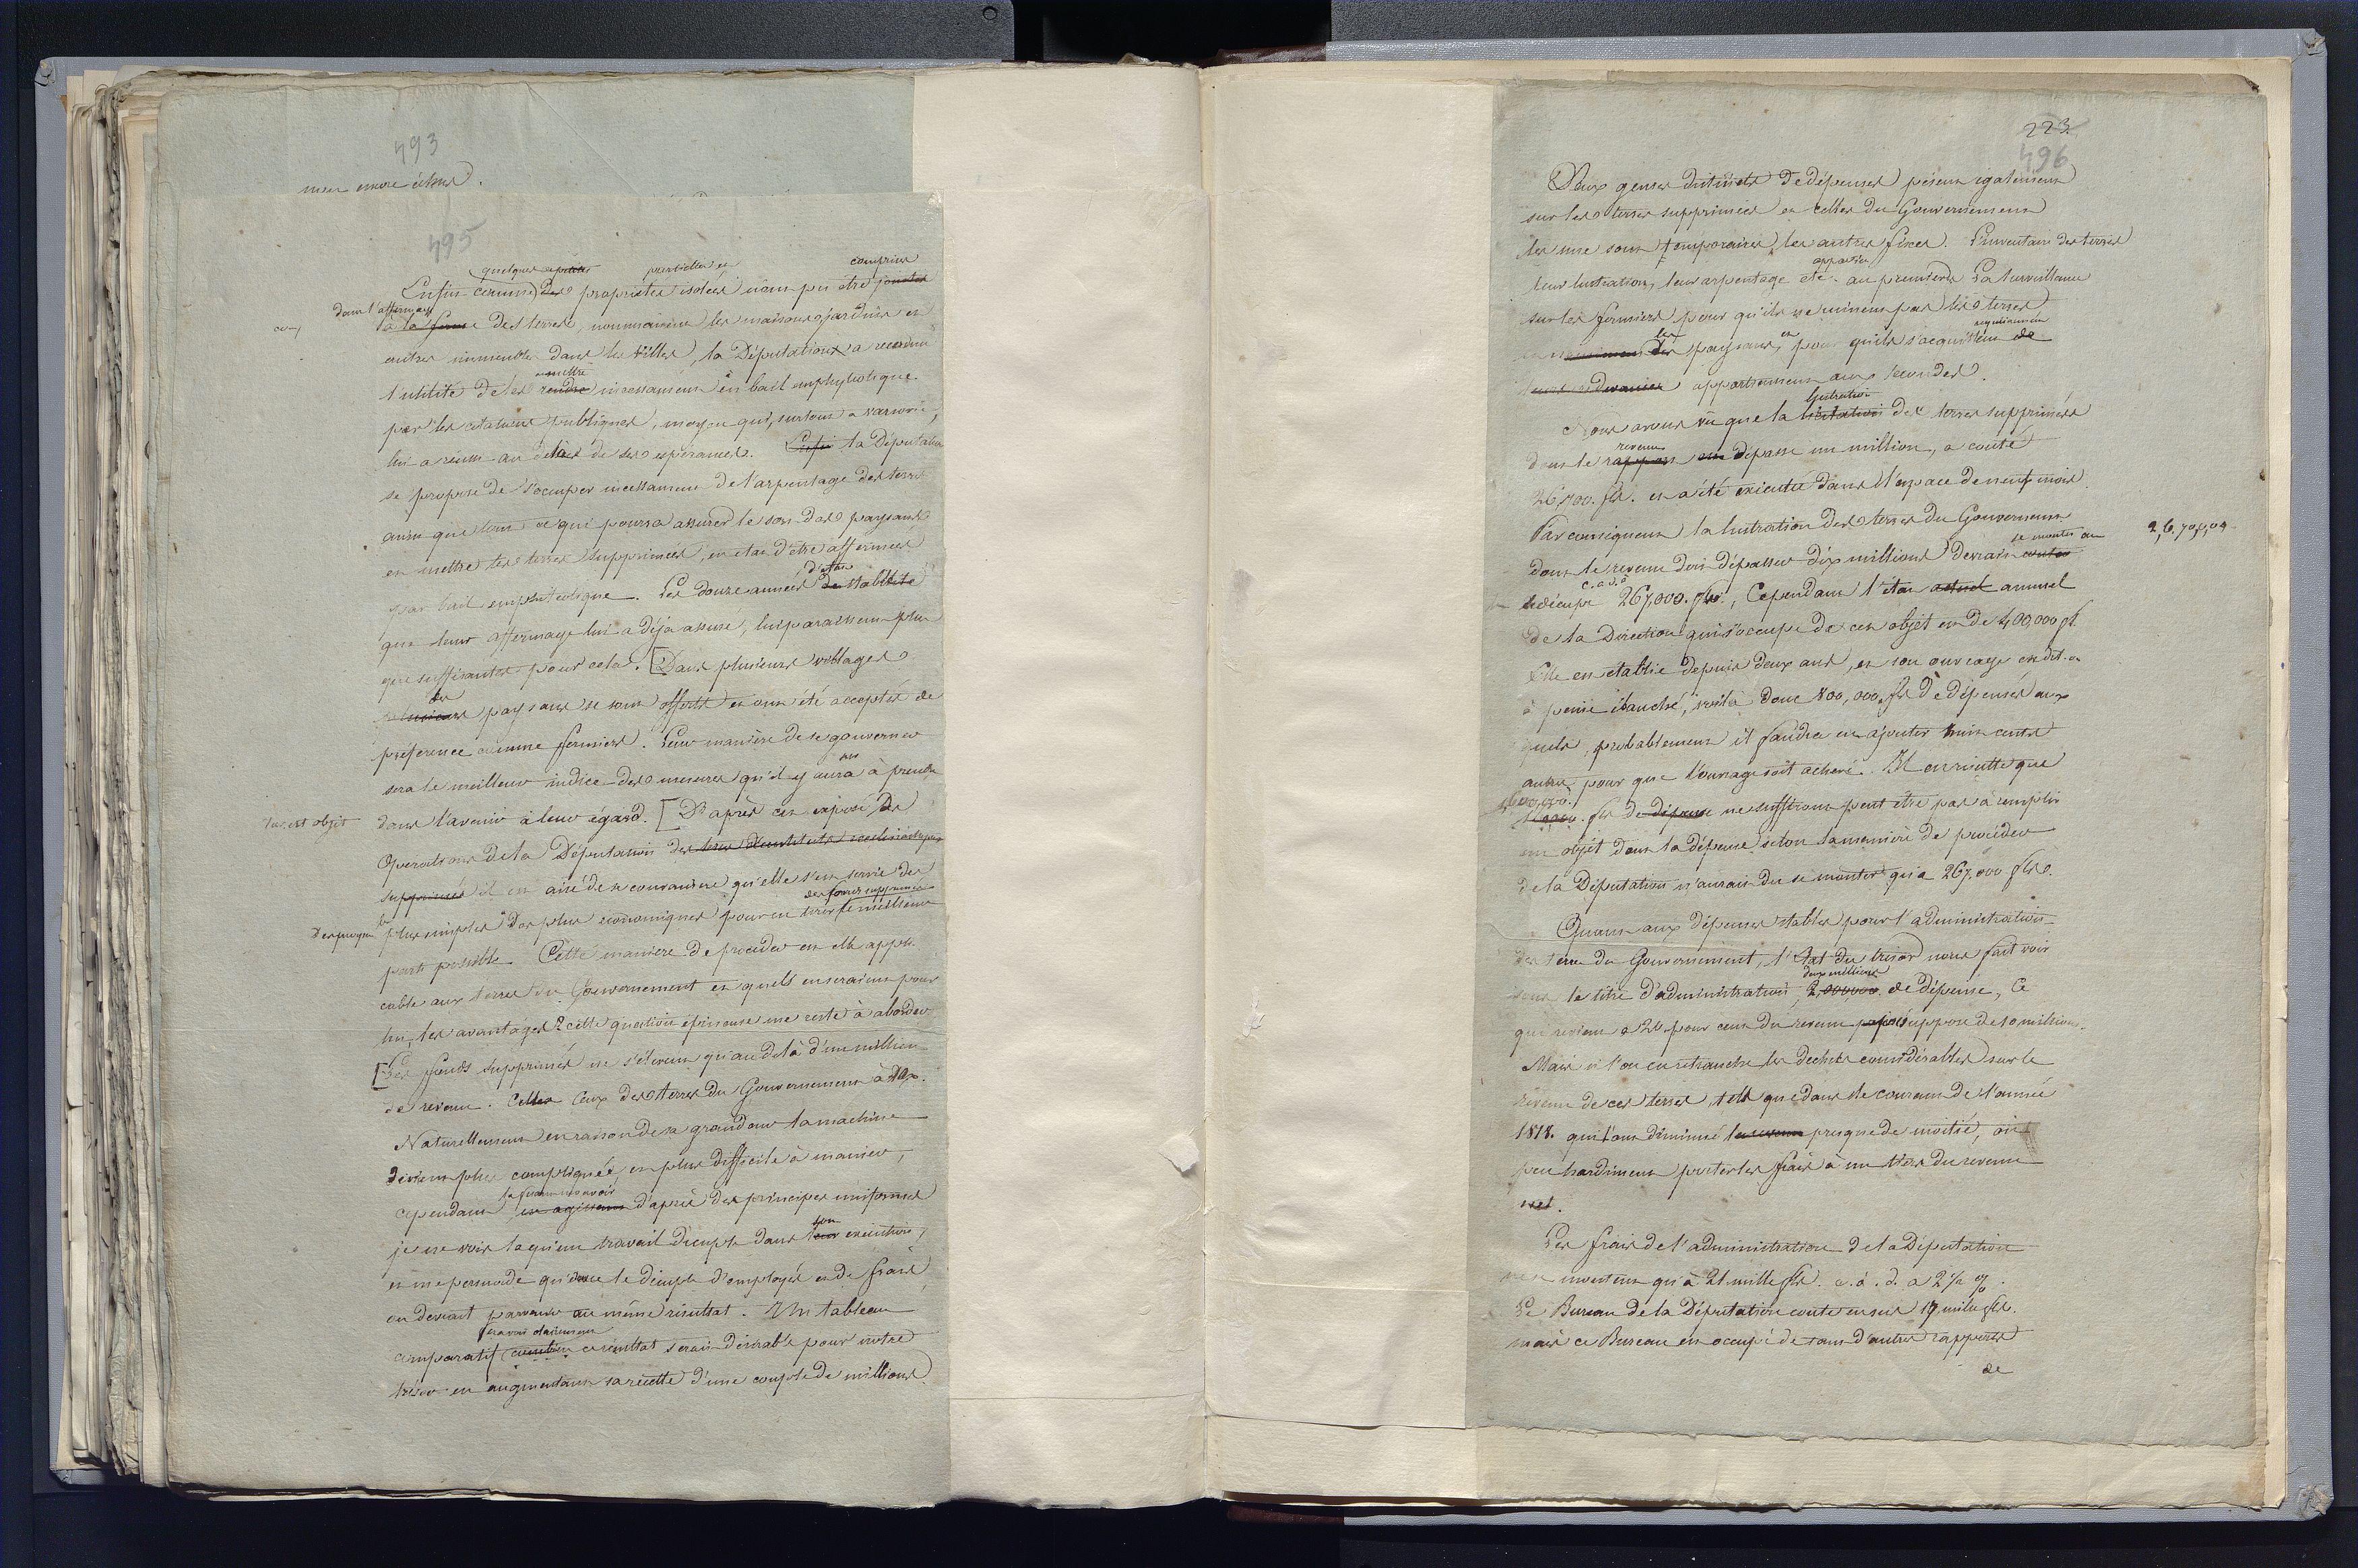 493
mer encore
495
quelques partielles et comprises
Enfin comme des propriétés isolées n'ont pu être jointes
dans l'affermage
à la ferme des terres, nommément les maisons, jardins et
autres immeubles dans les villes, la Députation a reconnu
mettre
l'utilité de les rendre incessament en bail emphyteotique
par les licitations publiques, moyen qui, surtout a Varsovie,
lui a réussi au delà de ses esperances. Enfin la Députation
se propose de s'occuper incessament de l'arpentage des terres
ainsi que tout ce qui pourra assurer le sort des paysans
et mettre les terres supprimées, en état d'être affermées
d'état
par bail emphiteotique. Les douze années de stabilité
que leur affermage lui a déja assuré, lui paraissent plus
que suffisantes pour cela. [Dans plusieurs villages
des
plusieurs paysans se sont offerts et ont été acceptés de
préference comme fermiers. Leur manière de se gouverner
sera le meilleur indice des mesures qu'il y aura à prendre
dans l'avenir à leur égard. [D'après cet exposé des
operations de la Députation des terres d'instituts ecclésiastiques
supprimés il est aisé de se convaincre qu'elle s'est servie des
des fonds supprimés
des moyens les plus simples des plus economiques pour en tirer le meilleur
parti possible. Cette maniere de proceder est elle appli-
cable aux terres du Gouvernement et quels en seraient pour
lui, les avantages? cette question épineuse me reste à aborder
[Les fonds supprimés ne s'élevent qu'au delà d'un million
de revenu. Celles Ceux des terres du Gouvernement à dix.
Naturellement en raison de sa grandeur la machine
devient plus compliquée, et plus difficile à manier,
cependant en agissant d'après des principes uniformes
son
je ne vois la qu'un travail décuple dans leur exécution,
et me persuade qu'avec le décuple d'employés et de frais
on devrait parvenir au même résultat. Un tableau
comparatif combien ce résultat serait désirable pour notre
trésor en augmentant sa recette d'une couple de millions
223
496
Deux genres distincts de dépenses pèsent egalement
sur les terres supprimées et celles du Gouvernement
les une sont temporaires, les autres fixes. L'inventaire des terres
appartient
leur lustration, leur arpentage etc. au premiers La surveillance
sur les fermiers pour qu'ils ne ruinent pas les terres
les et regulierement
des paysans, pour qu'ils s'acquittent de
leurs redevances appartiennent aux secondes.
lustration
Nous avons vu que la licitation des terres supprimées
revenu
dont le rapport dépasse un million, a couté
26,700. fls. et a été executée dans l'espace de neuf mois.
Par consequent la lustration des terres du Gouvernement
se monter au
dont le revenu doit dépasser dix millions devrait couter
2,6.70,0,0
c.a.d.
décuple 267,000. fls., Cependant l'état actuel annuel
de la Direction qui s'occupe de cet objet est de 400,000 fl.
Elle est etablie depuis deux ans, et son ouvrage est dit-on
à peine ébauché, voilà donc 800,000 fls de dépenses aux
quels, probablement il faudra en ajouter huit cents
autres pour que l'ouvrage soit achevé. Il en resulte que
1,600,000. fls de dépense ne suffiront peut être pas à remplir
un objet dont la dépense selon la maniere de proceder
de la Députation n'aurait du se monter qu'a 267.000 fls.
Quant aux dépenses stables pour l'administration
des terres du Gouvernement, l'état du trésor nous fait voir
deux millions
sous le titre d'administration 2,000000. de dépense, Ce
que revient a 20. pour cent du revenu supposé de 10 millions.
Mais si l'on en retranche les dechets considérables sur le
revenu de ces terres, tels que dans le courant de l'année
1818. qui l'ont diminué le revenu presque de moitié, on
peu hardiment porter les frais à un tiers du revenu
net.
Les frais de l'administration de la Députation
ne se montent qu'à 21. mille fls. c. à. d. a 2 1/2 %.
Le Bureau de la Députation coute en sus 19 mille fls.
mais ce Bureau est occupé de tant d'autres rapports
de